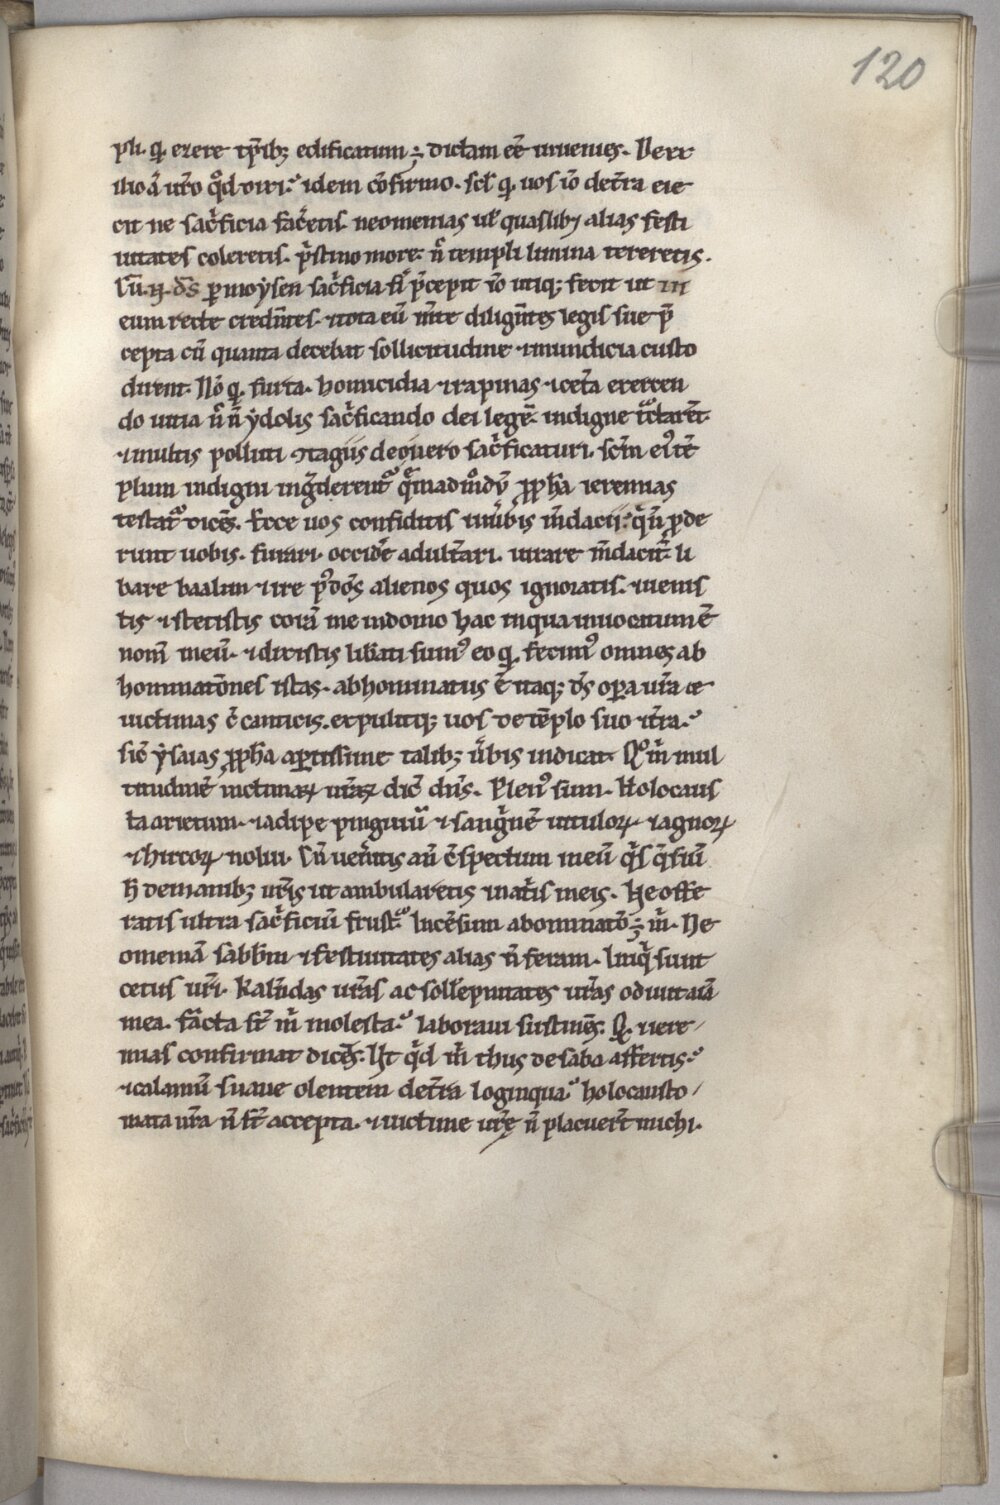 120
pli. q. exere tp̄ib; edificatum ÷ dictam eē inuenies. Verͬ
ilio ā ur̄o qd̄ dixi. idem c̄firmo. scł q. uos iō det̄ra eie
cit ne sac̄ficia fac̄etis. neomenias uł quaslib; alias festi
uitates coleretis. p̄stino more. n̄ templi limina tereretis.
Cū. n. d̄s p moysen sac̄ficia fi p̄cepit iō utiq; fecit ut in
eum recte credn̄tes. ⁊ tota eū m̄te dilign̄tes legis sue p̄
cepta cū quanta decebat sollicitudine ⁊ mundicia custo
dirent. Nō q. furta. homicidia ⁊ rapinas ⁊ cet̄a exercen
do uitia n̄ n̄ ydolis sac̄ficando dei legē indigne t̄ctarēt.
⁊ multis polluti ɔtagiis deo uero sac̄ficaturi. sc̄m ei⁹ tē
plum indigni inḡderent᷒ q̄madmodū p̄pha ieremias
testat᷒ dicēs. Ecce uos confiditis in ūbis m̄dacii. q̄ n̄ p̄de
runt uobis. furari. occidē adult̄ari. iurare m̄dacit̄. li
bare baalim ⁊ ire p⁹ dōs alienos quos ignoratis. ⁊ uenis
tis ⁊ stetistis corā me in domo hac in qua inuocatum ē
nom̄ meū. ⁊ dixistis lib̄ati sum⁹ eo q. fecim⁹ omnes ab
hominatōnes istas. abhominatus ē itaq; d̄s opa ur̄a ac
uictimas c̄ canticis. expulitq; uos de tēplo suo ⁊ t̄ra.
sic̄ ysaias p̄pha aptissime talib; ūbis indicat. Qͦ m̄ mul
titudinē uictimaꝝ ur̄aꝝ dic̄ dn̄s. Plen⁹ sum. Holocaus
ta arietum. ⁊ adipe pinguiū ⁊ sanḡnē uituloꝝ ⁊ agnoꝝ
⁊ hircoꝝ nolui. Cū uen̄itis an̄ c̄spectum meū q̄s q̄siuī
h̄ de manib; ur̄is ut ambularetis in at̄is meis. Ne offe
ratis ultra sac̄ficiū frust᷒. Incēsum abominatō ÷ m̄. Ne
omeniā sabbm̄ ⁊ festiuitates alias n̄ feram. Iniq̄ sunt
cetus ur̄i. kaln̄das ur̄as ac sollēpnitates ur̄as odiuit aīa
mea. fācta st̄ m̄ molesta. laboraui sustinēs. Q. ⁊ iere
mias confirmat dicēs. Ut qd̄ m̄ thus de saba affertis.
⁊ calamū suaue olentem det̄ra loginqua. holocausto
mata ur̄a n̄ st̄ accepta. ⁊ uictime ur̄ę n̄ placuert̄ michi.